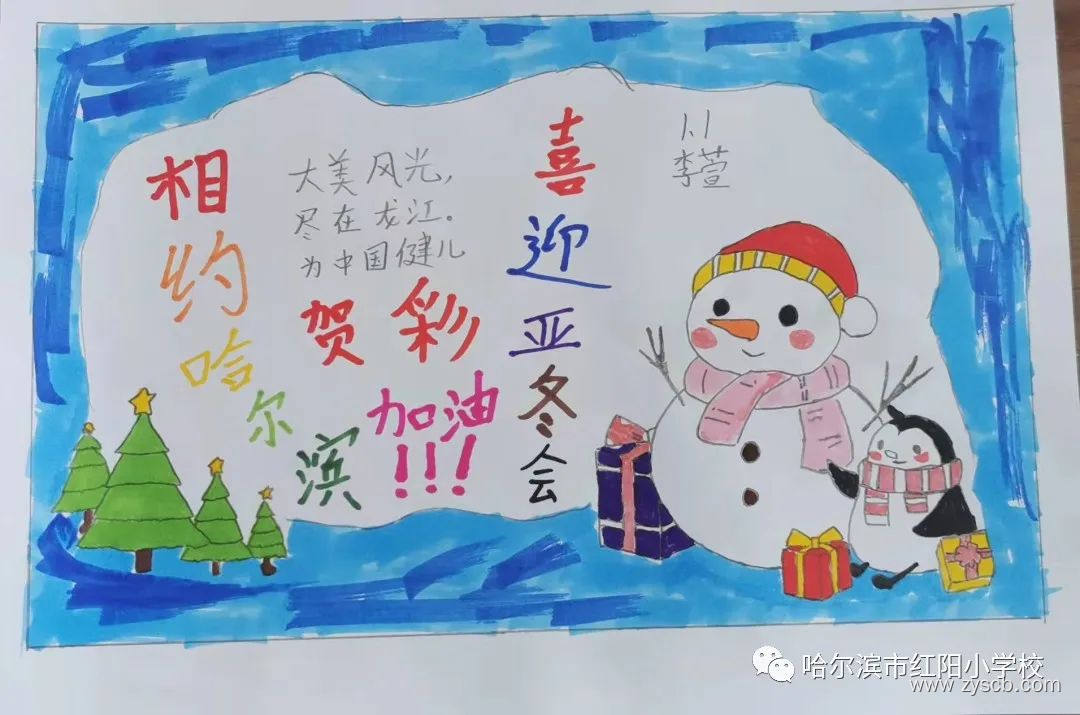 相约哈尔滨
大美风光,
尽在龙江.
为中国健儿
贺彩
加油
!!!
喜迎亚冬会
1.1
李萱
哈尔滨市红阳小学校
www.zyscb.com